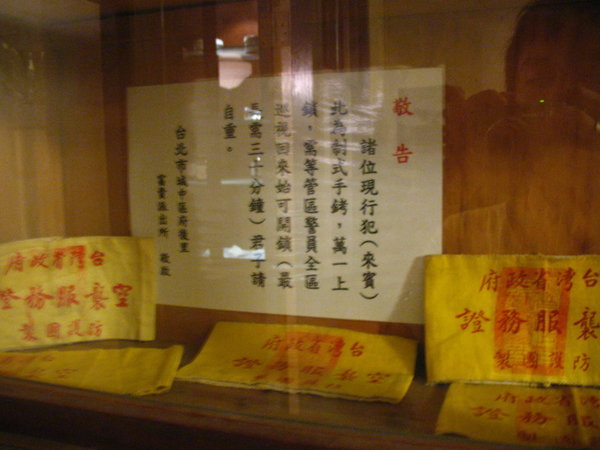 敬告
諸位現行犯(來賓)
此為制式手銬,萬一上
鎖,需等管區警員全區
巡視回來始可開鎖(最
長需三十分鐘)君子請
自重。
台北市城中區府後里
富貴派出所 敬啟
台灣省政府
空襲服務證
防護團製
台灣省政府
空襲服務證
台灣省政府
襲服務證
防護團製
服務證